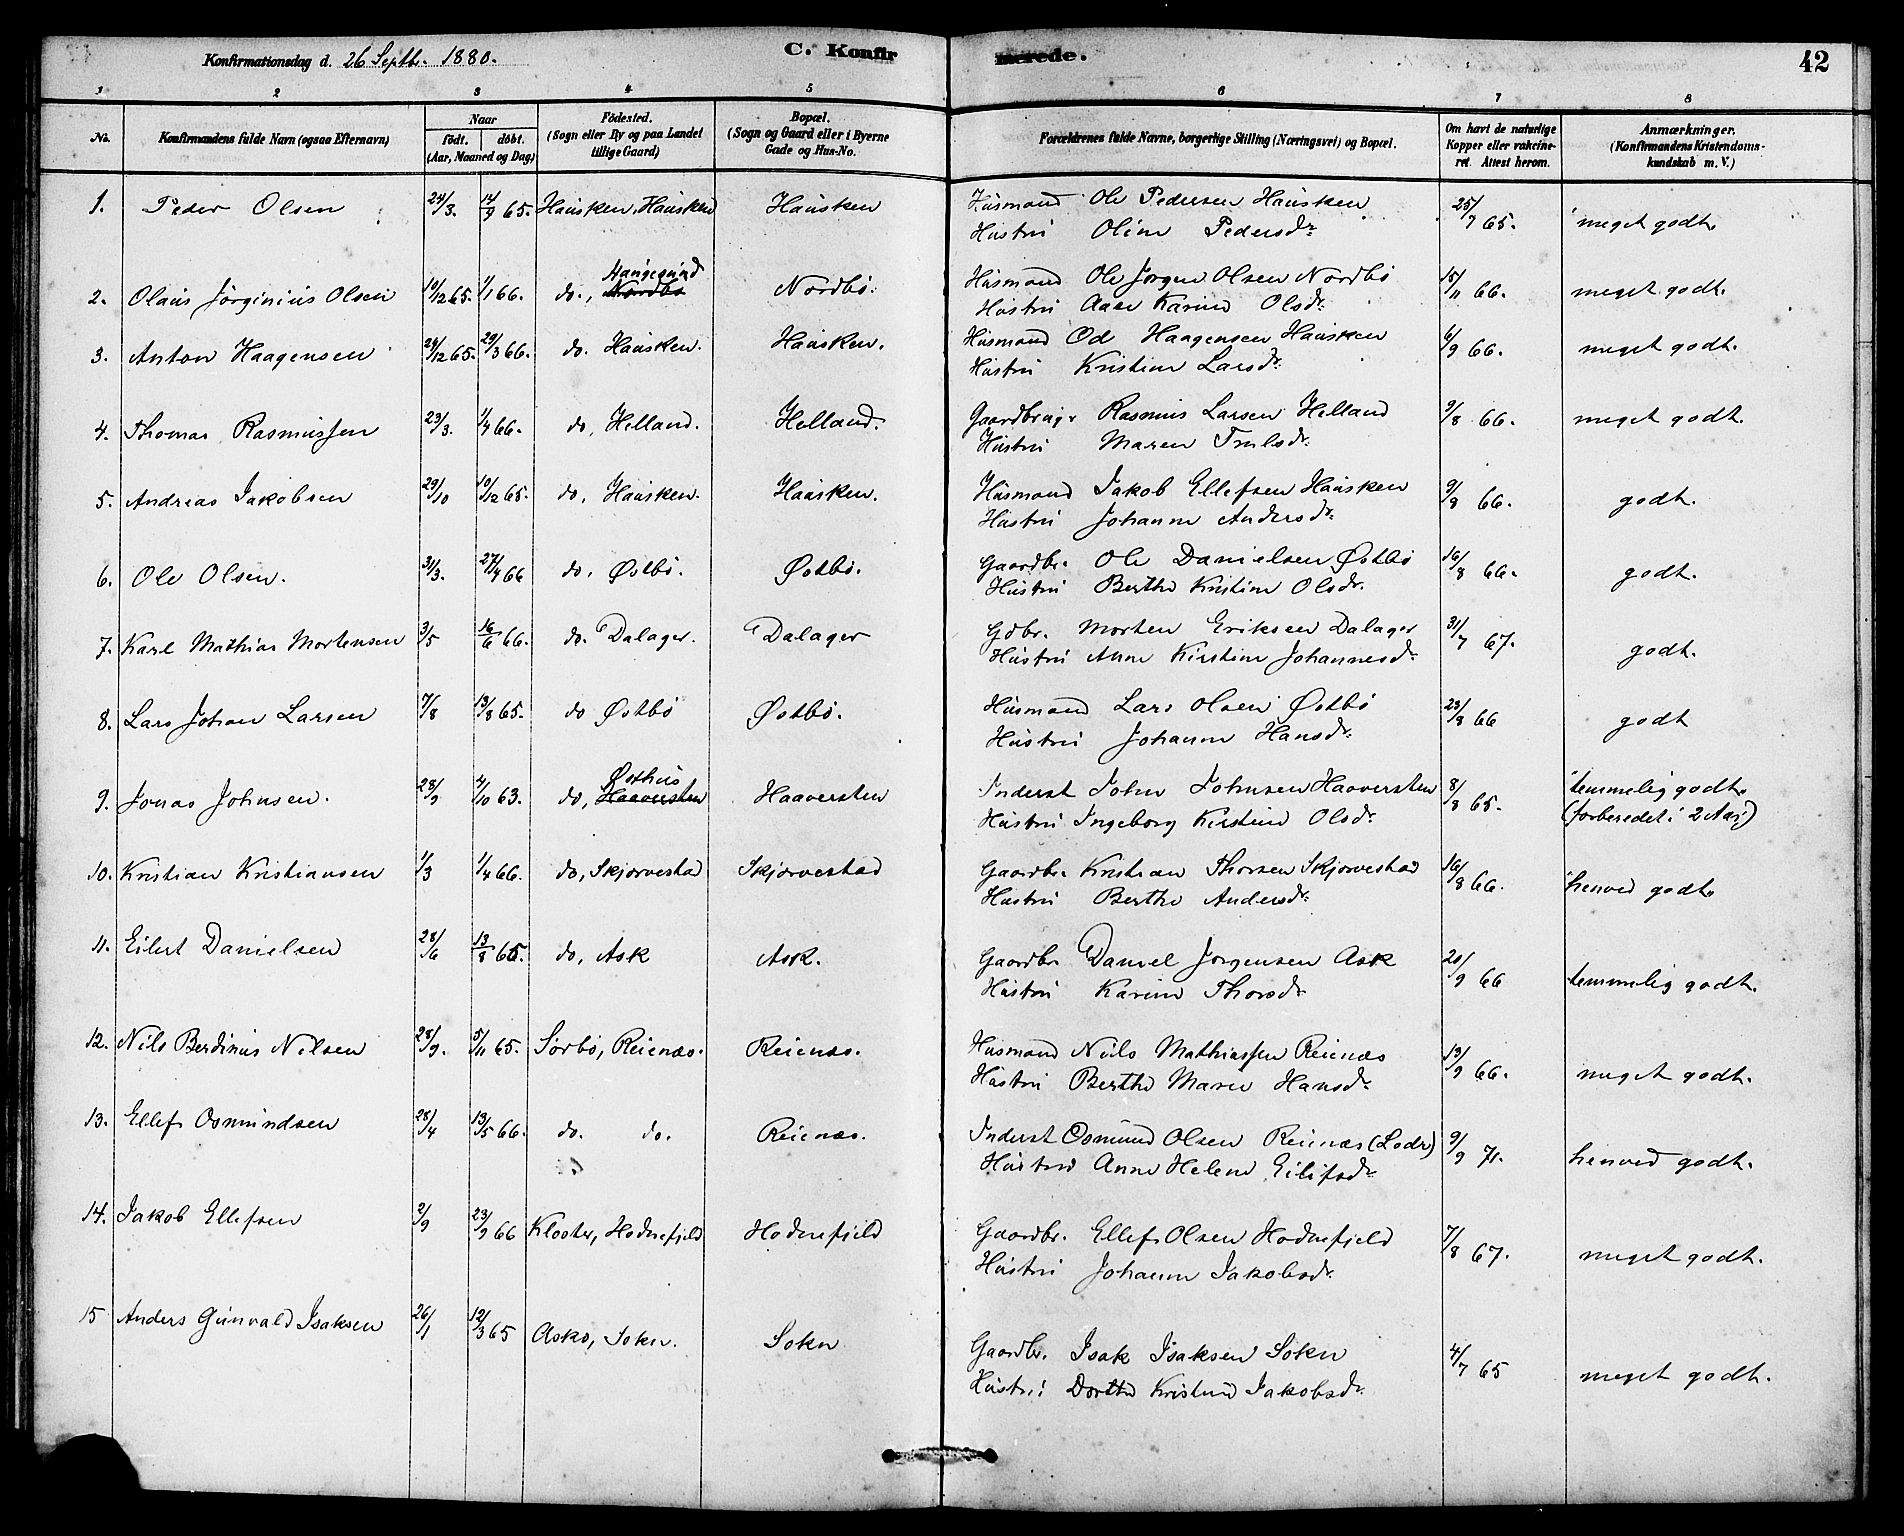 Konfirmationsdag d. 26 Septbr. 1880.
C. Konfirmerede.
42
1 2 3 4 5 6 7 8
No.
Konfirmandens fulde Navn (ogsaa Efternavn)
Naar
født. døbt.
(Aar, Maaned og Dag)
Fødested.
(Sogn eller By og paa Landet
tillige Gaard)
Bopæl.
(Sogn og Gaard eller i Byerne
Gade og Hus-No.
Forældrenes fulde Navne, borgerlige Stilling (Næringsvei) og Bopæl.
Om havt de naturlige
Kopper eller vakcine-
ret. Attest herom.
Anmærkninger.
(Konfirmandens Kristendoms-
kundskab m. V.)
1. Peder Olsen 24/3. 14/9 65. Hausken, Hausken Hausken Husmand Ole Pedersen Hausken 25/7 65. meget godt.
Hustru Oline Pedersdr.
Haugegund
2. Olaus Jørginius Olsen 10/12 65. 1/1 66. do., Nordbø Nordbø. Husmand Ole Jørgen Olsen Nordbø 15/11 66. meget godt.
Hustru Aase Karine Olsdr.
3. Anton Haagensen 24/12 65. 29/3 66. do. Hausken. Hausken. Husmand Od Haagensen Hausken 6/9 66. meget godt.
Hustru Kristine Larsdr.
4. Thomas Rasmussen 23/3. 1/4 66. do, Helland. Helland. Gaardbruger Rasmus Larsen Helland 9/8 66. meget godt.
Hustru Maren Trulsdr.
5. Andreas Jakobsen 29/10 10/12 65. do, Hausken. Hausken. Husmand Jakob Ellefsen Hausken 9/8 66. godt.
Hustru Johanne Andersdr.
6. Ole Olsen. 31/3. 27/4 66 do, Østbø. Østbø. Gaardbr. Ole Danielsen Østbø 16/8 66. godt.
Hustru Berthe Kristine Olsdr.
7. Karl Mathias Mortensen 3/5 16/6 66. do. Dalager. Dalager Gdbr. Morten Eriksen Dalager 31/7 67. godt.
Hustru Anne Kirstine Johannesdr.
8. Lars Johan Larsen 7/8 13/8 65. do Østbø Østbø. Husmand Lars Olsen Østbø 23/8 66 godt
Hustru Johanne Hansdr.
Østhus
9. Jonas Johnsen. 28/9 4/10 63. do, Haaversten Haaversten Inderst John Johnsen Haaversten 8/8 65. temmelig godt.
Hustru Ingeborg Kirstine Olsdr. (forberedet i 2 Aar)
10. Kristian Kristiansen 1/3 1/4 66. do, Skjørvestad Skjørvestad Gaardbr. Kristian Thorsen Skjørvestad 16/8 66. henved godt.
Hustru Berthe Andersdr.
11. Eilert Danielsen 28/6 13/8 65. do, Ask Ask. Gaardbr. Daniel Jørgensen Ask 20/9 66 temmelig godt.
Hustru Karine Thorsdr.
12. Nils Berdinus Nilsen 28/9. 5/11 65. Sørbø, Reienæs. Reienæs. Husmand Nils Mathiassen Reienæs 13/9 66. meget godt.
Hustru Berthe Maren Hansdr.
13. Ellef Osmundsen 28/4 13/5 66. do. do. Reienæs. Inderst Osmund Olsen Reienæs (Lods) 9/9 71. henved godt.
Hustru Anne Helene Eilifsdr.
14. Jakob Ellefsen 2/9 23/9 66 Kloster, Hodnefjeld Hodnefjeld Gaardbr. Ellef Olsen Hodnefjeld 7/8 67. meget godt.
Hustru Johanne Jakobsdr.
15 Anders Gunvald Isaksen 26/1 12/3 65 Askø, Sokn. Sokn Gaardbr. Isak Isaksen Sokn 4/7 65 meget godt.
Hustru Dorthe Kristine Jakobsdr.